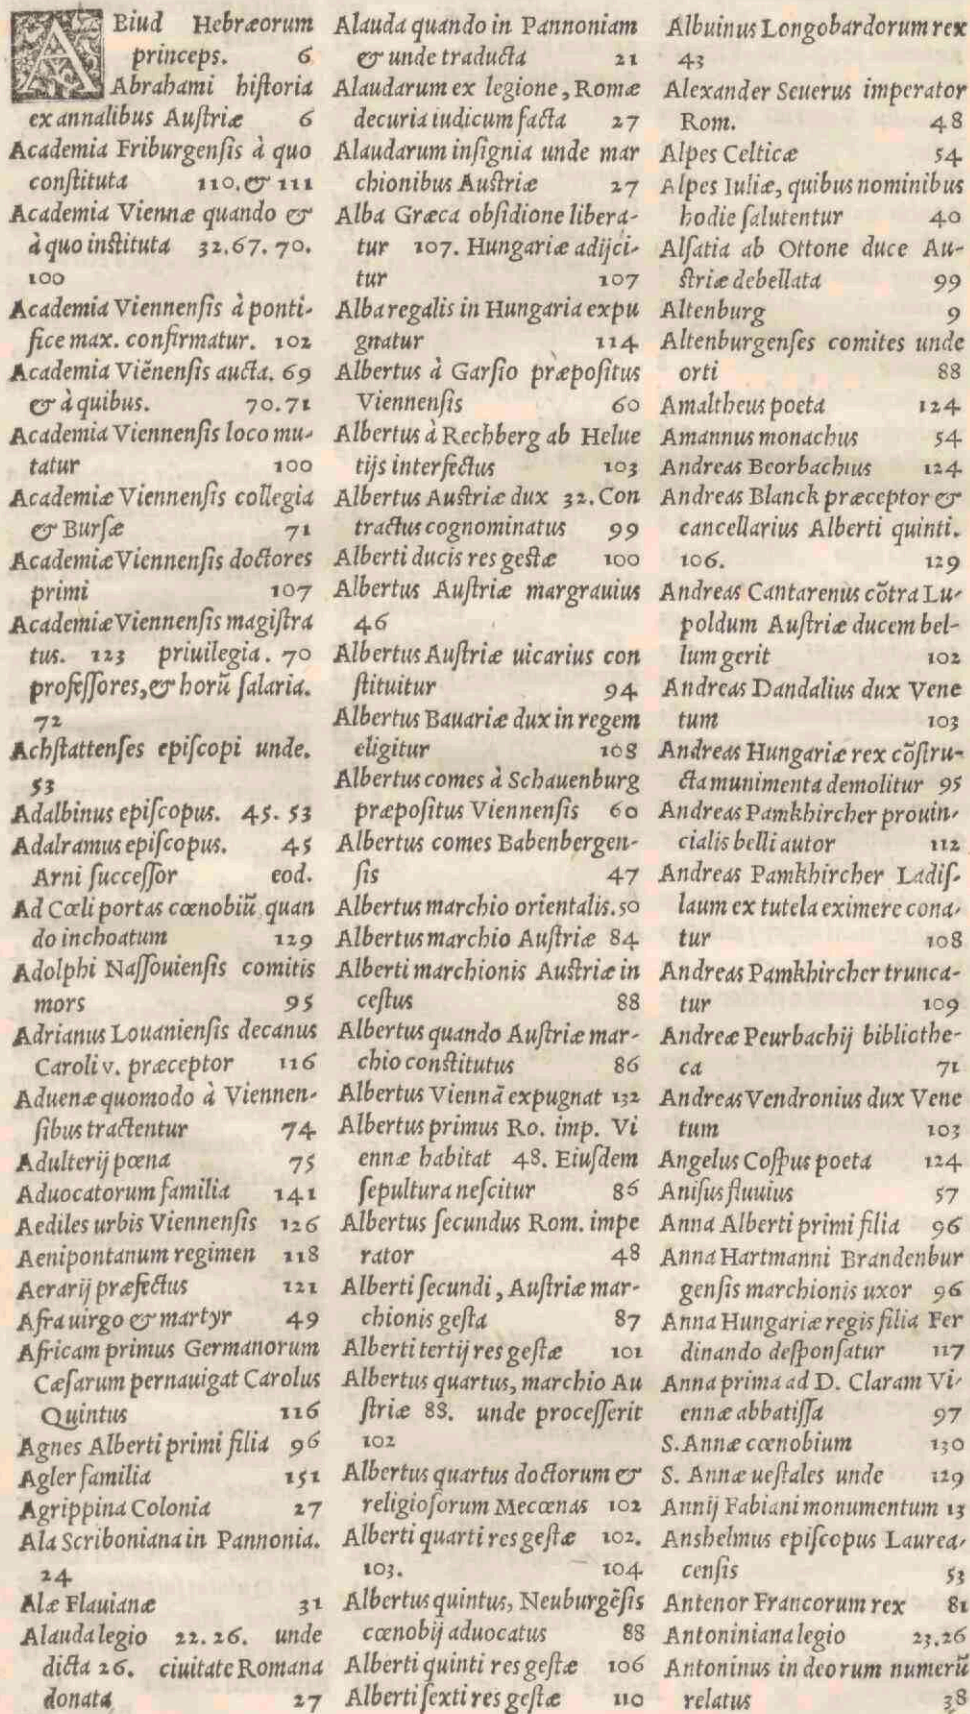 AEiud Hebræorum
princeps. 6
Abrahami hiſtoria
ex annalibus Auſtriæ 6
Academia Friburgenſis à quo
conſtituta 110. & 111
Academia Viennæ quando &
à quo inſtituta 32. 67. 70.
100
Academia Viennenſis à ponti-
fice max. confirmatur. 102
Academia Viẽnenſis aucta. 69
& à quibus. 70. 71
Academia Viennenſis loco mu-
tatur 100
Academiæ Viennenſis collegia
& Burſæ 71
Academiæ Viennenſis doctores
primi 107
Academiæ Viennenſis magiſtra
tus. 123 priuilegia. 70
profeſſores, & horũ ſalaria.
72
Achſtattenſes epiſcopi unde.
53
Adalbinus epiſcopus. 45. 53
Adalramus epiſcopus. 45
Arni ſucceſſor eod.
Ad Cœli portas cœnobiũ quan
do inchoatum 129
Adolphi Naſſouienſis comitis
mors 95
Adrianus Louanienſis decanus
Caroli v. præceptor 116
Aduenæ quomodo à Viennen-
ſibus tractentur 74
Adulterij pœna 75
Aduocatorum familia 141
Aediles urbis Viennenſis 126
Aenipontanum regimen 118
Aerarij præfectus 121
Afra uirgo & martyr 49
Africam primus Germanorum
Cæſarum pernauigat Carolus
Quintus 116
Agnes Alberti primi filia 96
Agler familia 151
Agrippina Colonia 27
Ala Scriboniana in Pannonia.
24
Alæ Flauianæ 31
Alauda legio 22. 26. unde
dicta 26. ciuitate Romana
donata 27
Alauda quando in Pannoniam
& unde traducta 21
Alaudarum ex legione, Romæ
decuria iudicum facta 27
Alaudarum inſignia unde mar
chionibus Auſtriæ 27
Alba Græca obſidione libera-
tur 107. Hungariæ adijci-
tur 107
Alba regalis in Hungaria expu
gnatur 114
Albertus à Garſio præpoſitus
Viennenſis 60
Albertus à Rechberg ab Helue
tijs interfectus 103
Albertus Auſtriæ dux 32. Con
tractus cognominatus 99
Alberti ducis res geſtæ 100
Albertus Auſtriæ margrauius
46
Albertus Auſtriæ uicarius con
ſtituitur 94
Albertus Bauariæ dux in regem
eligitur 108
Albertus comes à Schauenburg
præpoſitus Viennenſis 60
Albertus comes Babenbergen-
ſis 47
Albertus marchio orientalis. 50
Albertus marchio Auſtriæ 84
Alberti marchionis Auſtriæ in
ceſtus 88
Albertus quando Auſtriæ mar-
chio conſtitutus 86
Albertus Viennã expugnat 132
Albertus primus Ro. imp. Vi
ennæ habitat 48. Eiuſdem
ſepultura neſcitur 86
Albertus ſecundus Rom. impe
rator 48
Alberti ſecundi, Auſtriæ mar-
chionis geſta 87
Alberti tertij res geſtæ 101
Albertus quartus, marchio Au
ſtriæ 88. unde proceſſerit
102
Albertus quartus doctorum &
religioſorum Mecœnas 102
Alberti quarti res geſtæ 102.
103. 104
Albertus quintus, Neuburgẽſis
cœnobij aduocatus 88
Alberti quinti res geſtæ 106
Alberti ſexti res geſtæ 110
Albuinus Longobardorum rex
43
Alexander Seuerus imperator
Rom. 48
Alpes Celticæ 54
Alpes Iuliæ, quibus nominibus
hodie ſalutentur 40
Alſatia ab Ottone duce Au-
ſtriæ debellata 99
Altenburg 9
Altenburgenſes comites unde
orti 88
Amaltheus poeta 124
Amannus monachus 54
Andreas Beorbachius 124
Andreas Blanck præceptor &
cancellarius Alberti quinti.
106. 129
Andreas Cantarenus cõtra Lu-
poldum Auſtriæ ducem bel-
lum gerit 102
Andreas Dandalius dux Vene
tum 103
Andreas Hungariæ rex cõſtru-
cta munimenta demolitur 95
Andreas Pamkhircher prouin-
cialis belli autor 112
Andreas Pamkhircher Ladiſ-
laum ex tutela eximere cona-
tur 108
Andreas Pamkhircher trunca-
tur 109
Andreæ Peurbachij bibliothe-
ca 71
Andreas Vendronius dux Vene
tum 103
Angelus Coſpus poeta 124
Aniſus fluuius 57
Anna Alberti primi filia 96
Anna Hartmanni Brandenbur
genſis marchionis uxor 96
Anna Hungariæ regis filia Fer
dinando deſponſatur 117
Anna prima ad D. Claram Vi-
ennæ abbatiſſa 97
S. Annæ cœnobium 130
S. Annæ ueſtales unde 129
Annij Fabiani monumentum 13
Anshelmus epiſcopus Laurea-
cenſis 53
Antenor Francorum rex 81
Antoniniana legio 23. 26
Antoninus in deorum numerũ
relatus 38